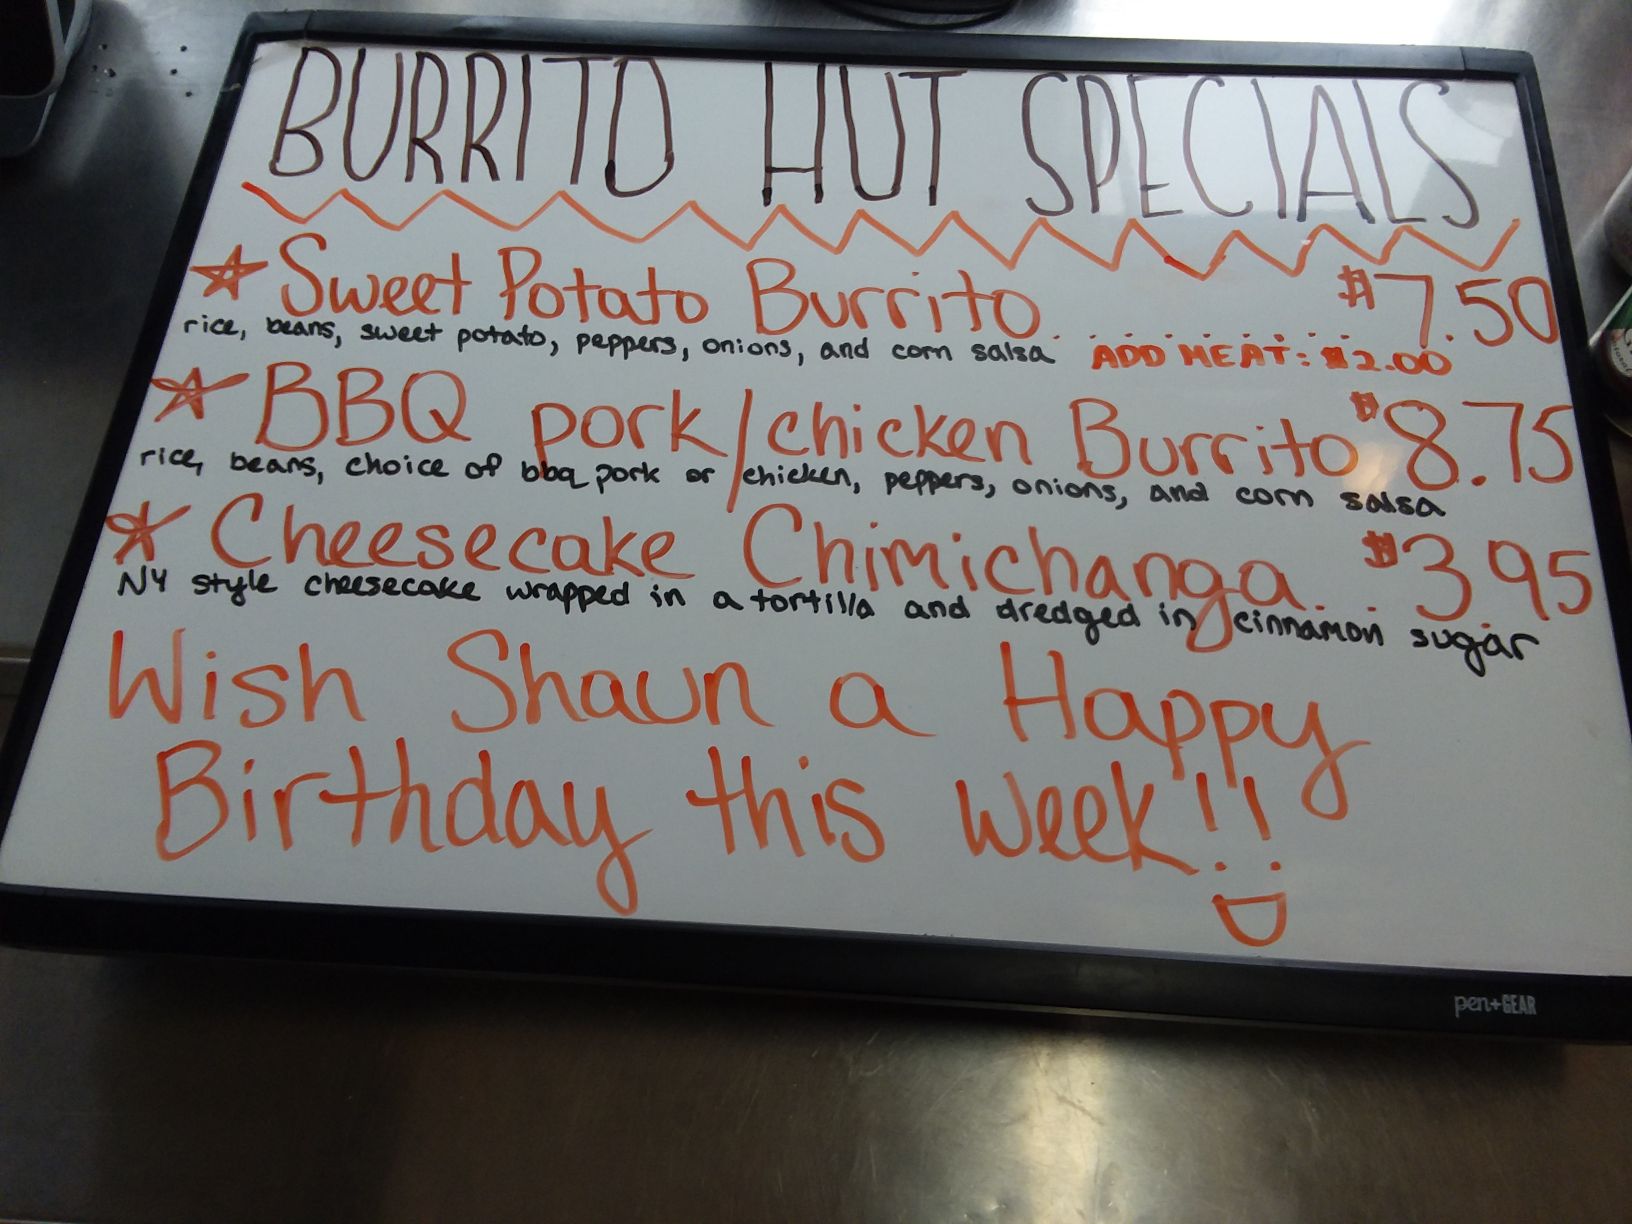 BURRITO HUT SPECIALS
Sweet Potato Burrito $7.50
rice, beans, sweet potato, peppers, onions, and corn salsa ADD MEAT: $2.00
BBQ pork/chicken Burrito $8.75
rice, beans, choice of bbq pork or chicken, peppers, onions, and corn salsa
Cheesecake Chimichanga... $3.95
NY style cheesecake wrapped in a tortilla and dredged in cinnamon sugar
Wish Shaun a Happy
Birthday this week!!
pen+GEAR